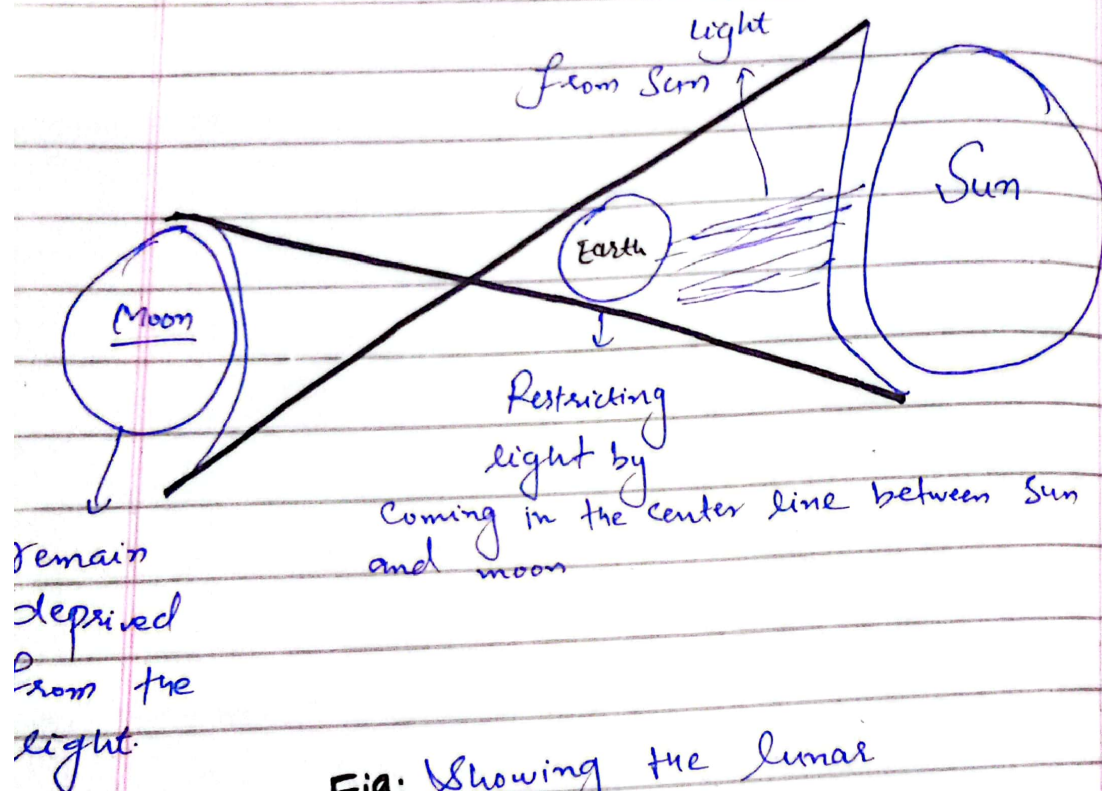 Light
from Sun
Sun
Earth
Moon
Restricting
light by
Coming in the center line between Sun
and moon
remain
deprived
from the
light.
Fig. Showing the lunar